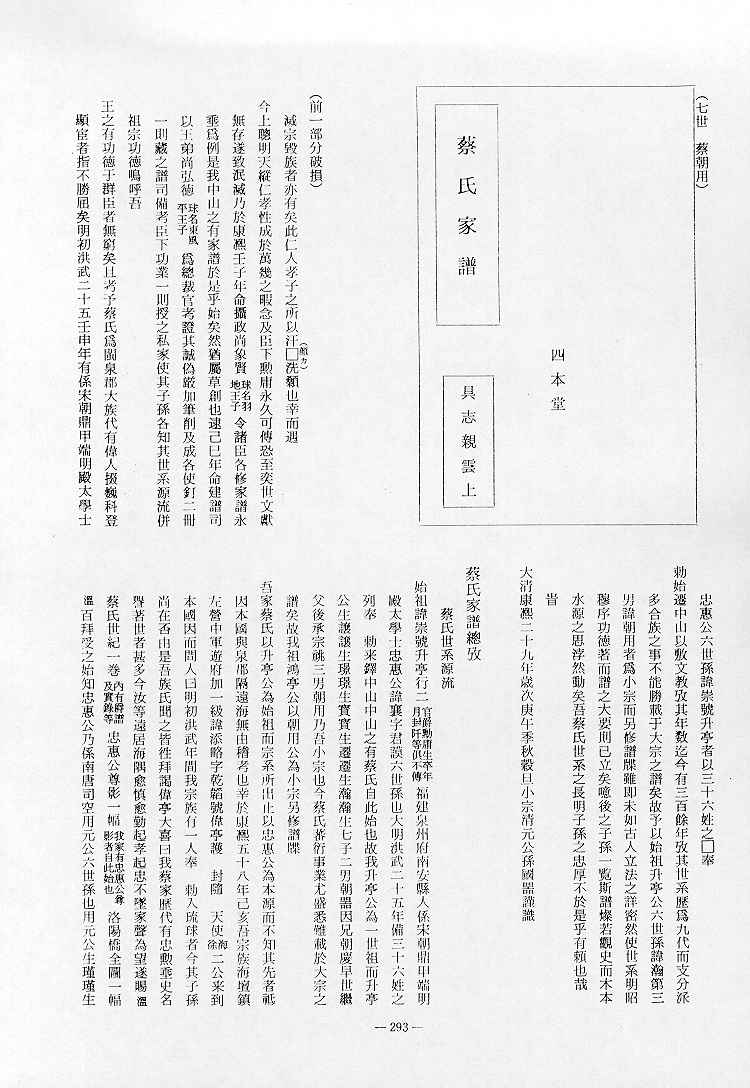 (七世　蔡朝用)
四本堂
蔡氏家譜
具志親雲上
(前一部分破損)
滅宗毀族者亦有矣此仁人孝子之所以汗□洗顙也幸而遇
(顏カ)
今上聰明天縱仁孝性成於萬幾之暇念及臣下勳庸永久可傳恐至奕世文獻
無存遂致泯滅乃於康熙壬子年命攝政尚象賢 球名羽地王子 令諸臣各修家譜永
垂爲例是我中山之有家譜於是乎始矣然猶屬草創也逮己巳年命建譜司
以王弟尚弘德 球名東風平王子 爲總裁官考證其誠僞嚴加筆削及成各使釘二冊
一則藏之譜司備考臣下功業一則授之私家使其子孫各知其世系源流併
祖宗功德嗚呼吾
王之有功德于群臣者無窮矣且考予蔡氏爲閩泉郡大族代有偉人掇巍科登
顯宦者指不勝屈矣明初洪武二十五壬申年有係宋朝鼎甲端明殿太學士
忠惠公六世孫諱崇號升亭者以三十六姓之□奉
勅始遷中山以敷文教攷其年數迄今有三百餘年攷其世系歷爲九代而支分派
多合族之事不能勝載于大宗之譜矣故予以始祖升亭公六世孫諱瀚第三
男諱朝用者爲小宗而另修譜牒雖即未如古人立法之詳密然使世系明昭
穆序功德著而譜之大要則已立矣噫後之子孫一覧斯譜燦若觀史而木本
水源之思浡然動矣吾蔡氏世系之長明子孫之忠厚不於是乎有賴也哉
旹
大清康熙二十九年歲次庚午季秋穀旦小宗清元公孫國器謹識
蔡氏家譜總攷
蔡氏世系源流
始祖諱崇號升亭行二 官爵勳庸生卒年月封阡等俱不傳 福建泉州府南安縣人係宋朝鼎甲端明
殿太學士忠惠公諱襄字君謨六世孫也大明洪武二十五年備三十六姓之
列奉　勅來鐸中山中山之有蔡氏自此始也故我升亭公爲一世祖而升亭
公生讓讓生璟璟生寶寶生遷遷生瀚瀚生七子二男朝器因兄朝慶早世繼
父後承宗祧三男朝用乃吾小宗也今蔡氏蕃衍事業尤盛悉雖載於大宗之
譜矣故我祖鴻亭公以朝用公為小宗另修譜牒
吾家蔡氏以升亭公為始祖而宗系所出止以忠惠公為本源而不知其先者祗
因本國與泉郡隔遠海無由稽考也幸於康熙五十八年己亥吾宗族海壇鎮
左營中軍遊府加一級諱添略字乾韜號偉亭護　封隨　天使 海徐 二公來到
本國因而問人曰明初洪武年間我宗族有一人奉　勅入琉球者今其子孫
尚在否由是吾族氏聞之皆往拜謁偉亭大喜曰我蔡家歷代有忠勳垂史名
聲著世者甚多今汝等遠居海隅愈慎愈勤起孝起忠不墜家聲為望遂賜 溫
蔡氏世紀一巻 內有爵譜及實錄等 忠惠公尊影一幅 我家有忠惠公尊影者自此始也 洛陽橋全圖一幅
溫百拜受之始知忠惠公乃係南唐司空用元公六世孫也用元公生瑾瑾生
— 293 —